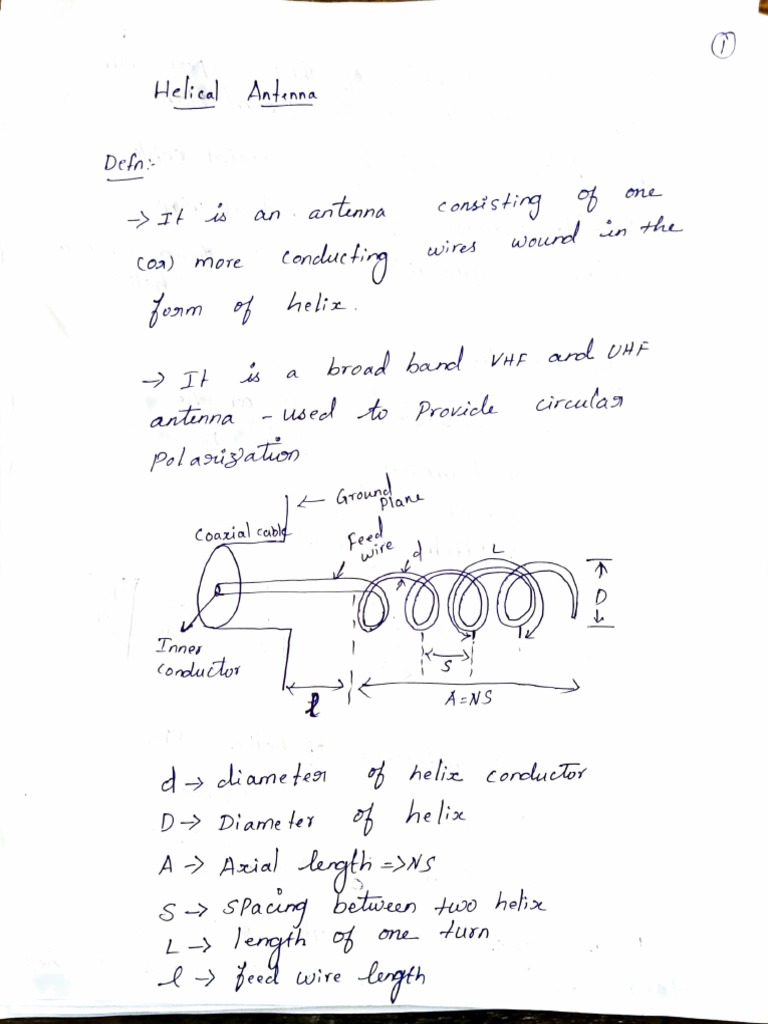 1
Helical Antenna
Defn:-
→ It is an antenna consisting of one
(or) more conducting wires wound in the
form of helix.
→ It is a broad band VHF and UHF
antenna - used to Provide circular
Polarization
← Ground
Plane
Coaxial cable
Feed
wire
d
L
D
Inner
conductor
S
l
A=NS
d → diameter of helix conductor
D → Diameter of helix
A → Axial length => NS
S → spacing between two helix
L → length of one turn
l → feed wire length